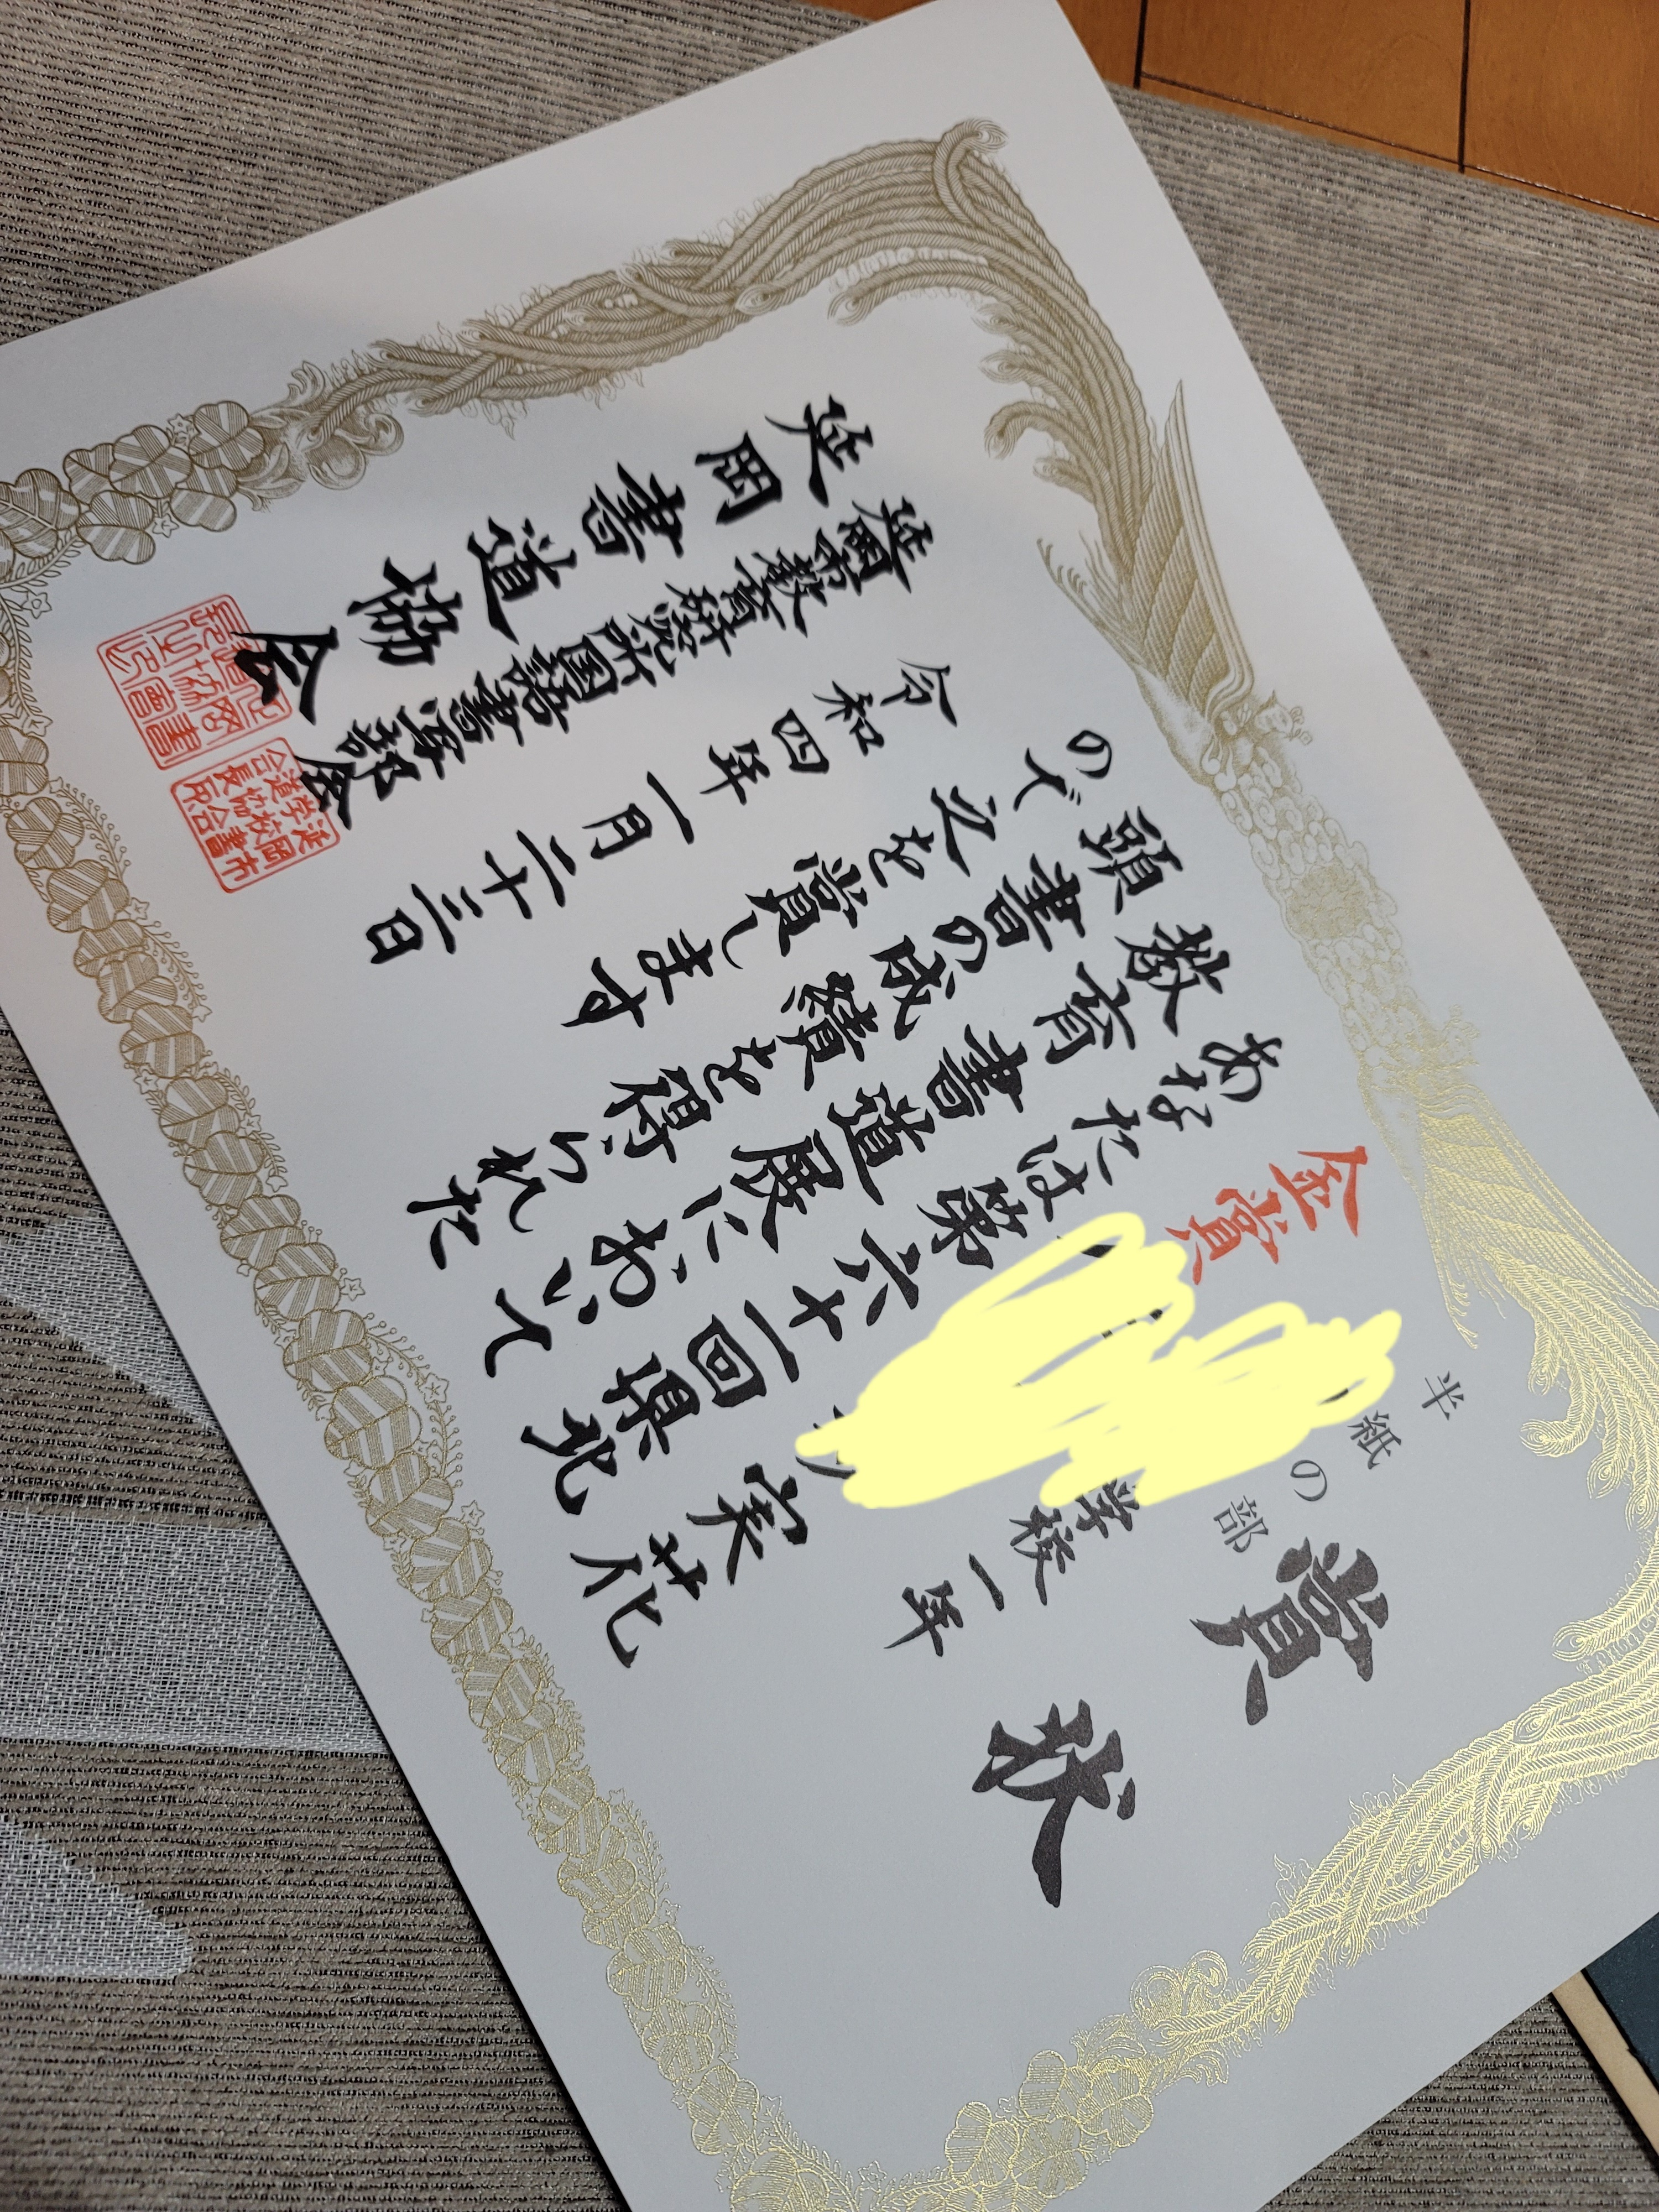 賞状
半紙の部
金賞
学校一年
実花
あなたは第六十一回県北
教育書道展において
頭書の成績を得られた
ので之を賞します
令和四年一月二十三日
延岡市教育研究所国語書写部会
延岡書道協会